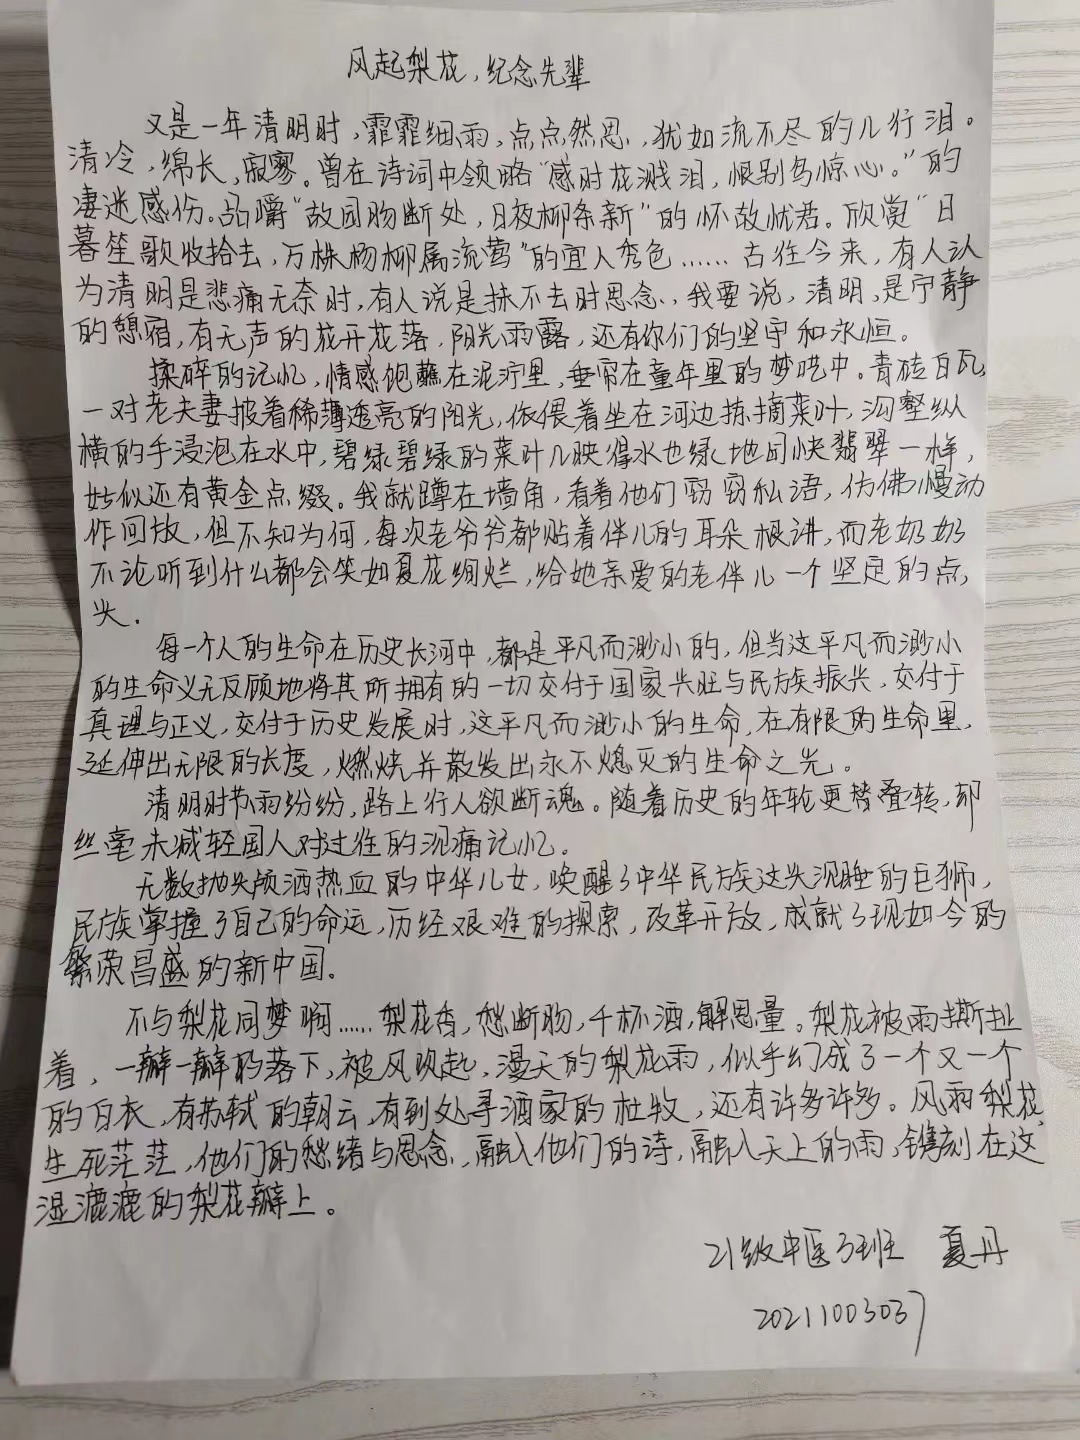 风起梨花，纪念先辈
又是一年清明时，霏霏细雨，点点然思，犹如流不尽的几行泪。
清冷，绵长，寂寥。曾在诗词中领略“感时花溅泪，恨别鸟惊心。”的
凄迷感伤。品嚼“故园肠断处，日夜柳条新”的怀故忧君。欣赏“日
暮笙歌收拾去，万株杨柳属流莺”的宜人秀色……古往今来，有人认
为清明是悲痛无奈时，有人说是抹不去时思念，我要说，清明，是宁静
的憩宿，有无声的花开花落，阳光雨露，还有你们的坚守和永恒。
揉碎的记忆，情感饱蘸在泥泞里，垂帘在童年里的梦呓中。青砖白瓦，
一对老夫妻披着稀薄透亮的阳光，依偎着坐在河边拣摘菜叶，沟壑纵
横的手浸泡在水中，碧绿碧绿的菜叶儿映得水也绿地同快翡翠一样，
好似还有黄金点缀。我就蹲在墙角，看着他们窃窃私语，仿佛慢动
作回放，但不知为何，每次老爷爷都贴着伴儿的耳朵根讲，而老奶奶
不论听到什么都会笑如夏花绚烂，给她亲爱的老伴儿一个坚定的点
头．
每一个人的生命在历史长河中，都是平凡而渺小的，但当这平凡而渺小
的生命义无反顾地将其所拥有的一切交付于国家兴旺与民族振兴，交付于
真理与正义，交付于历史发展时，这平凡而渺小的生命，在有限的生命里，
延伸出无限的长度，燃烧并散发出永不熄灭的生命之光。
清明时节雨纷纷，路上行人欲断魂。随着历史的年轮更替叠转，却
丝毫未减轻国人对过往的沉痛记忆。
无数抛头颅洒热血的中华儿女，唤醒了中华民族这头沉睡的巨狮，
民族掌握了自己的命运，历经艰难的探索，改革开放，成就了现如今的
繁荣昌盛的新中国．
不与梨花同梦啊……梨花香，愁断肠，千杯酒，解思量。梨花被雨撕扯
着，一瓣一瓣的落下，被风吹起，漫天的梨花雨，似乎幻成了一个又一个
的白衣，有苏轼的朝云，有到处寻酒家的杜牧，还有许多许多。风雨梨花，
生死茫茫，他们的愁绪与思念，融入他们的诗，融入天上的雨，镌刻在这
湿漉漉的梨花瓣上。
21级中医3班 夏丹
20211003037